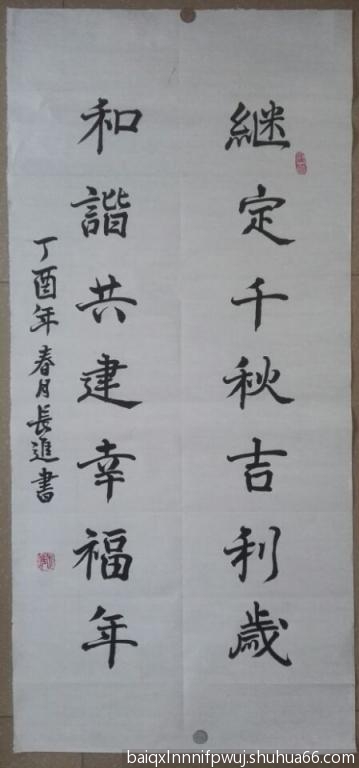 継定千秋吉利歳
和諧共建幸福年
丁酉年春月長進書
baiqxlnnnifpwuj.shuhua66.com